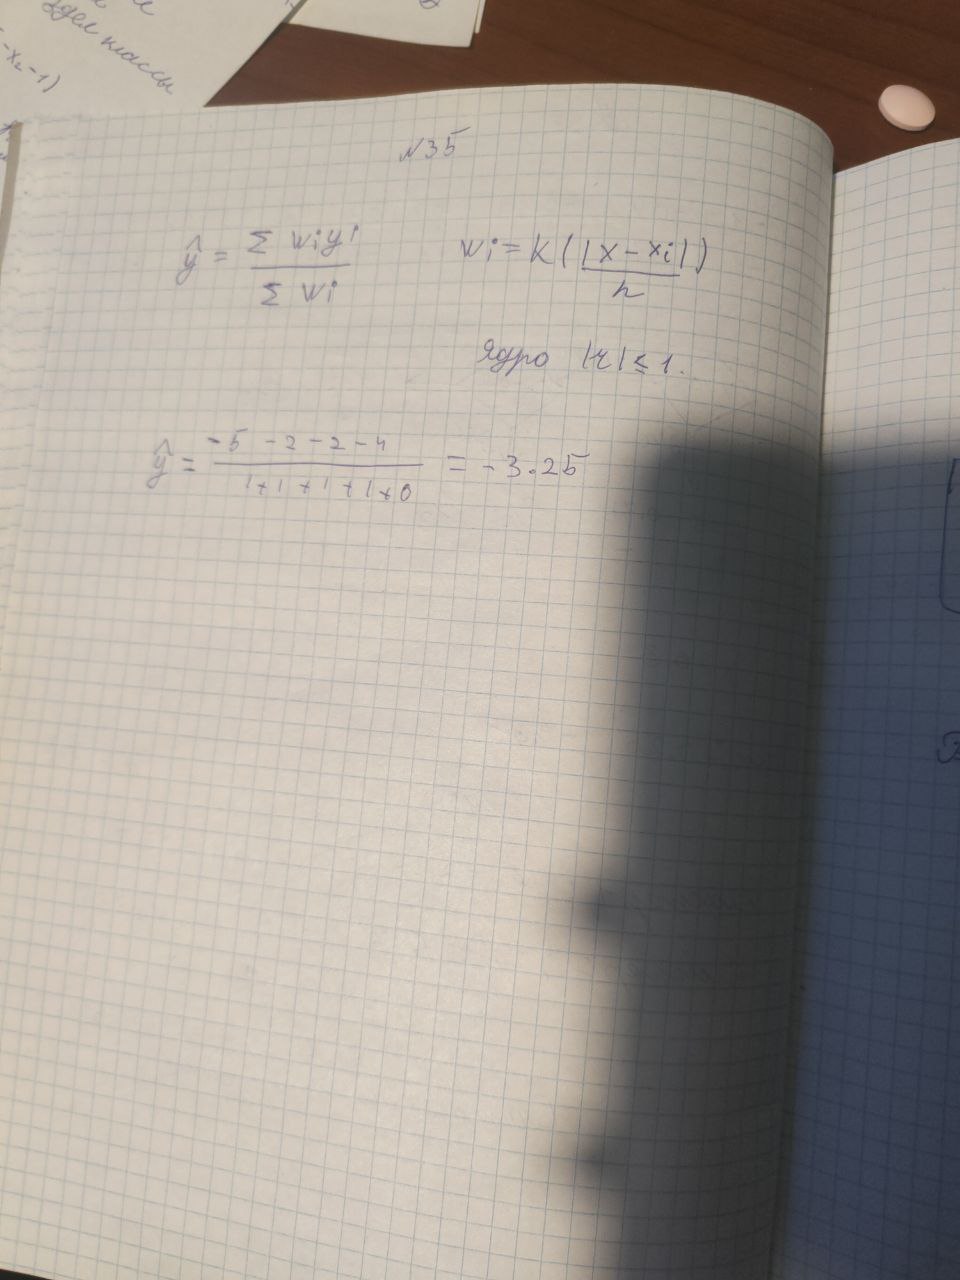 здел классы
-x₂-1)
N35
ŷ = Σ wiyi / Σ wi    wi = K(|x - xi| / h)
Ядро |r| ≤ 1.
ŷ = -5 -2 -2 -4 / 1+1+1+1+0 = -3.25